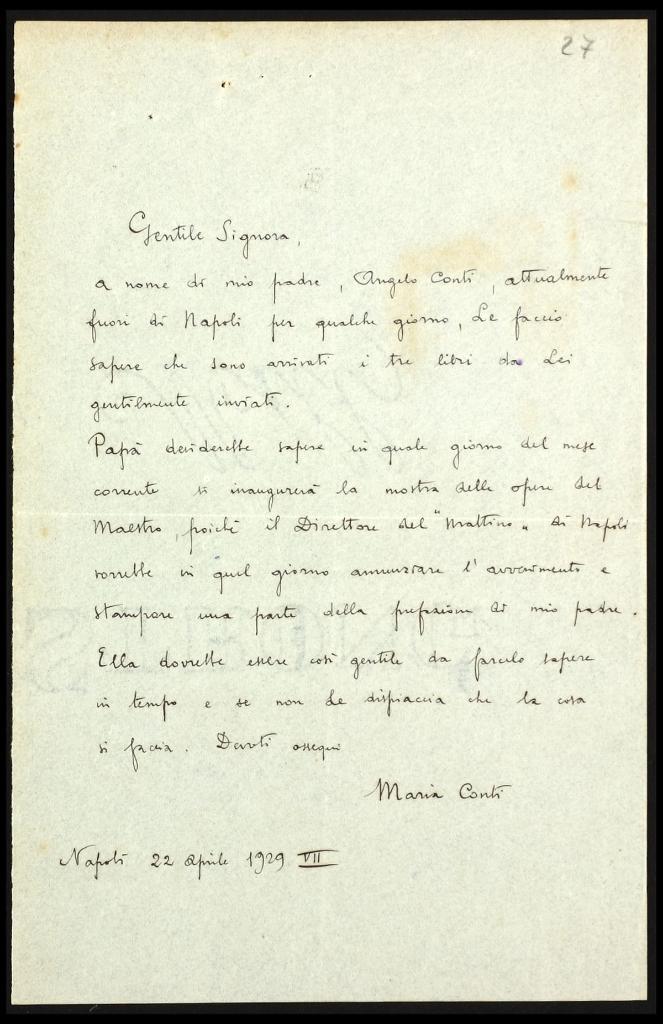 27
Gentile Signora,
a nome di mio padre, Angelo Conti, attualmente
fuori di Napoli per qualche giorno, Le faccio
sapere che sono arrivati i tre libri da Lei
gentilmente inviati.
Papà desidererebbe sapere in quale giorno del mese
corrente si inaugurerà la mostra delle opere del
Maestro, poiché il Direttore del "Mattino" di Napoli
vorrebbe in quel giorno annunziare l'avvenimento e
stampare una parte della prefazione di mio padre.
Ella dovrebbe essere così gentile da farcelo sapere
in tempo e se non Le dispiaccia che la cosa
si faccia. Devoti ossequi
Maria Conti
Napoli 22 aprile 1929 VII